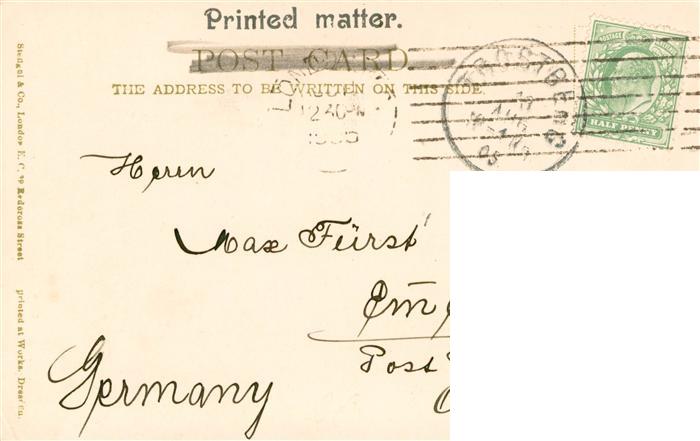 Printed matter.
POST CARD
THE ADDRESS TO BE WRITTEN ON THIS SIDE.
POSTAGE
HALF PENNY
12 40 PM
Herrn
Max Fürst
Post
Germany
Stengel & Co., London E. C. 39 Redcross Street
printed at Works. Dresden.